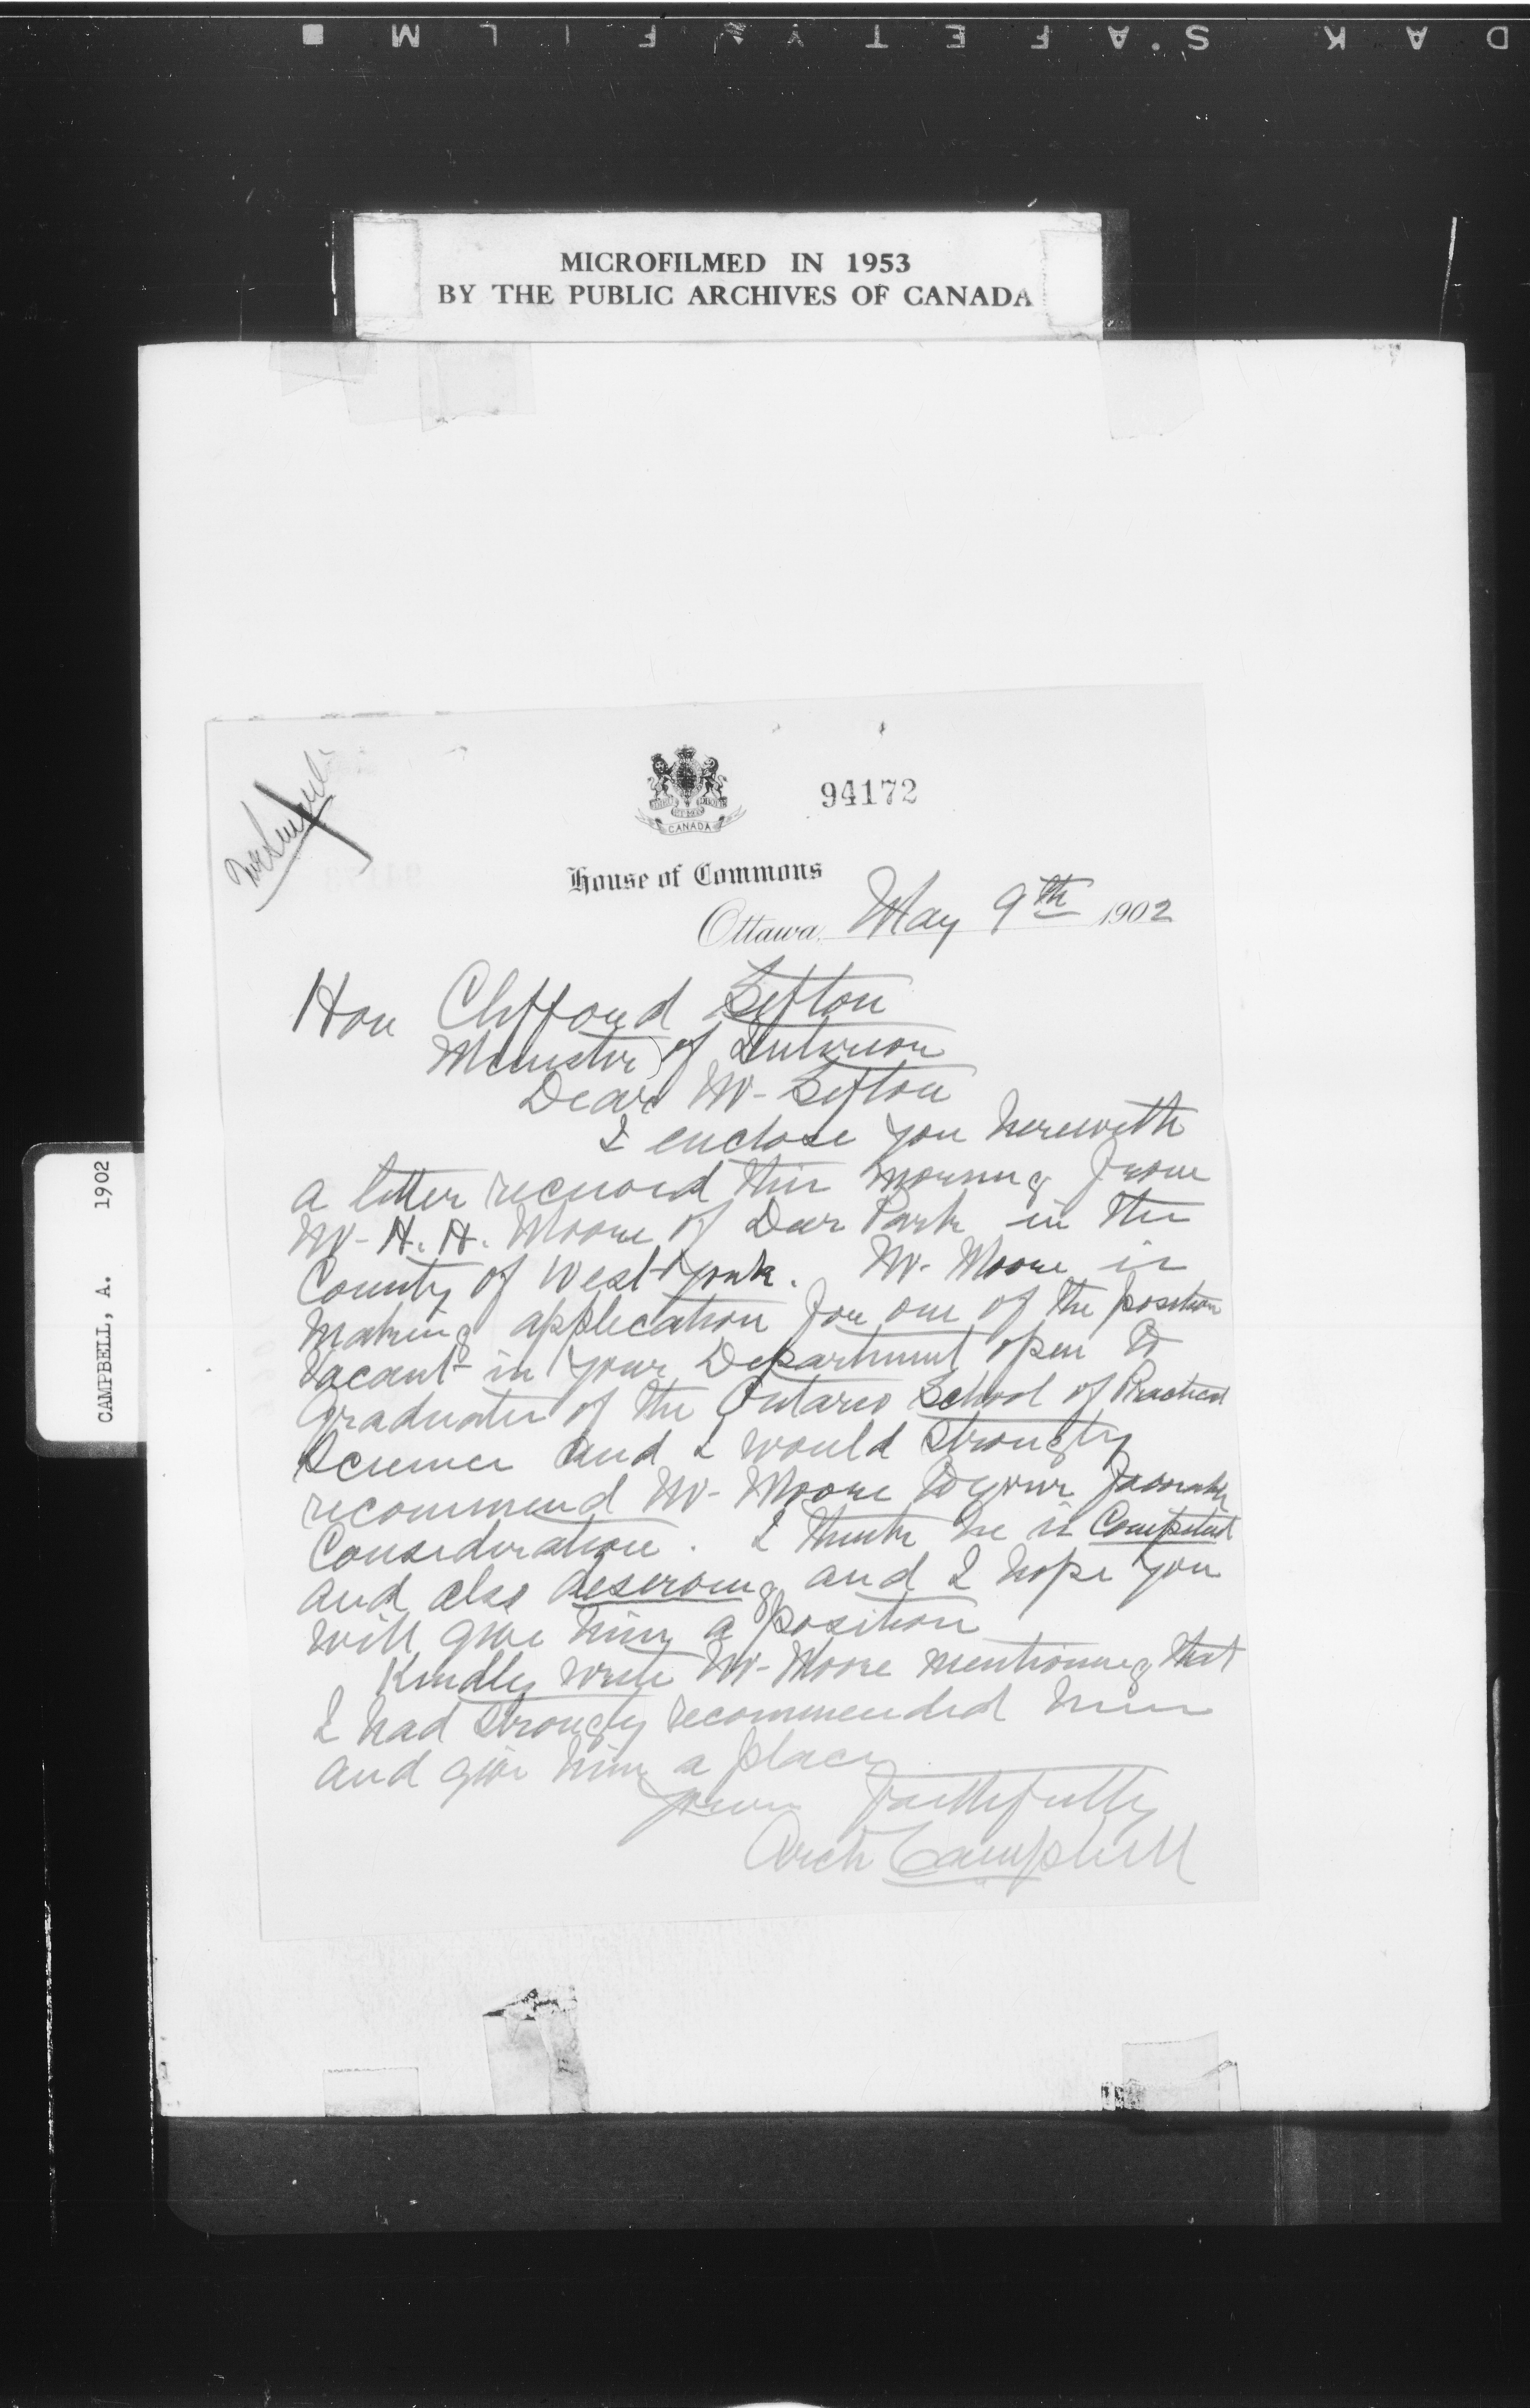 DAK SAFETY FILM
MICROFILMED IN 1953
BY THE PUBLIC ARCHIVES OF CANADA
94172
CANADA
House of Commons
Ottawa, May 9th 1902
Hon Clifford Sifton
Minister of Interior
Dear Mr - Sifton
I enclose you herewith
a letter received this morning from
Mr - H. H. Moore of Deer Park in the
County of West York. Mr. Moore is
making application for one of the position
vacant in your Department open to
graduates of the Ontario School of Practical
Science and I would strongly
recommend Mr - Moore to your favorable
Consideration. I think he is Competent
and also deserving and I hope you
will give him a position
Kindly write Mr - Moore mentioning that
I had strongly recommended him
and give him a place
yours faithfully
Arch Campbell
CAMPBELL, A. 1902